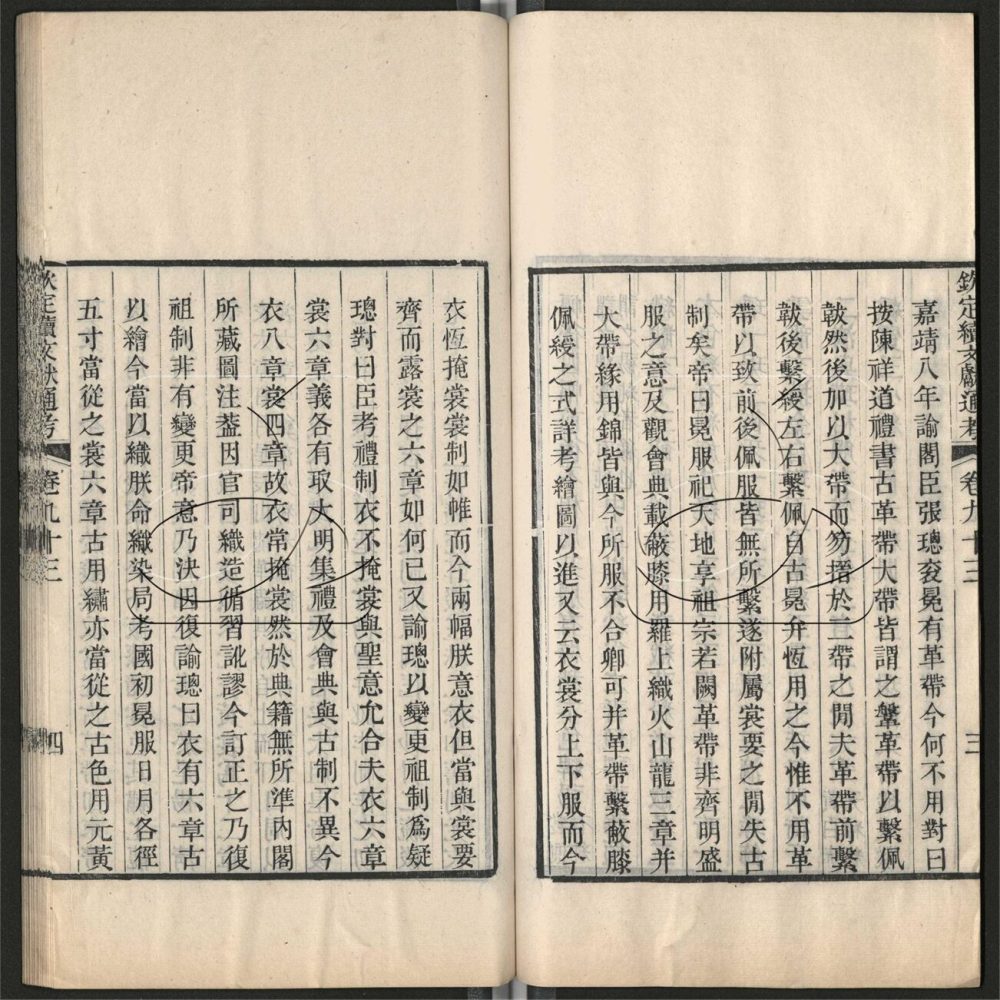 欽定續文獻通考 卷九十三 三
嘉靖八年諭閣臣張璁袞冕有革帶今何不用對曰
按陳祥道禮書古革帶大帶皆謂之鞶革帶以繫佩
韍然後加以大帶而笏搢於二帶之閒夫革帶前繫
韍後繫綬左右繫佩自古冕弁恆用之今惟不用革
帶以致前後佩服皆無所繫遂附屬裳要之閒失古
制矣帝曰冕服祀天地享祖宗若闕革帶非齊明盛
服之意及觀會典載蔽膝用羅上織火山龍三章并
大帶緣用錦皆與今所服不合卿可并革帶繫蔽膝
佩綬之式詳考繪圖以進又云衣裳分上下服而今
衣恆掩裳裳制如帷而今兩幅朕意衣但當與裳要
齊而露裳之六章如何已又諭璁以變更祖制為疑
璁對曰臣考禮制衣不掩裳與聖意允合夫衣六章
裳六章義各有取大明集禮及會典與古制不異今
衣八章裳四章故衣常掩裳然於典籍無所準內閣
所藏圖注蓋因官司織造循習訛謬今訂正之乃復
祖制非有變更帝意乃決因復諭璁曰衣有六章古
以繪今當以織朕命織染局考國初冕服日月各徑
五寸當從之裳六章古用繡亦當從之古色用元黃
欽定續文獻通考 卷九十三 四